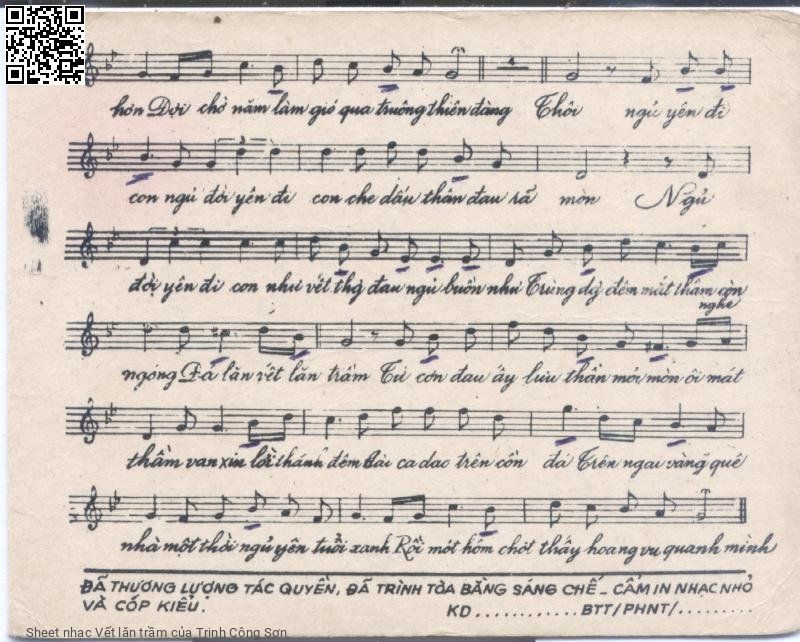 hơn Đợi chờ năm làm gió qua truông thiên đàng Thôi ngủ yên đi
con ngủ đời yên đi con che dấu thân đau rã mòn Ngủ
đời yên đi con như vết thơ đau ngủ buồn như Trùng dạ đêm mắt thâm còn nghe
ngóng Đá lăn vết lăn trầm Từ cơn đau ấy lưu thân mỏi mòn ôi mắt
thầm van xin lời thánh đêm bài ca dao trên cồn đá Trên ngai vàng quê
nhà một thời ngủ yên tuổi xanh Rồi một hôm chợt thấy hoang vu quanh mình
ĐÃ THƯƠNG LƯỢNG TÁC QUYỀN, ĐÃ TRÌNH TÒA BẰNG SÁNG CHẾ - CẤM IN NHẠC NHỎ
VÀ CÓP KIỂU. KD............BTT/PHNT/.........
Sheet nhạc Vết lăn trầm của Trịnh Công Sơn